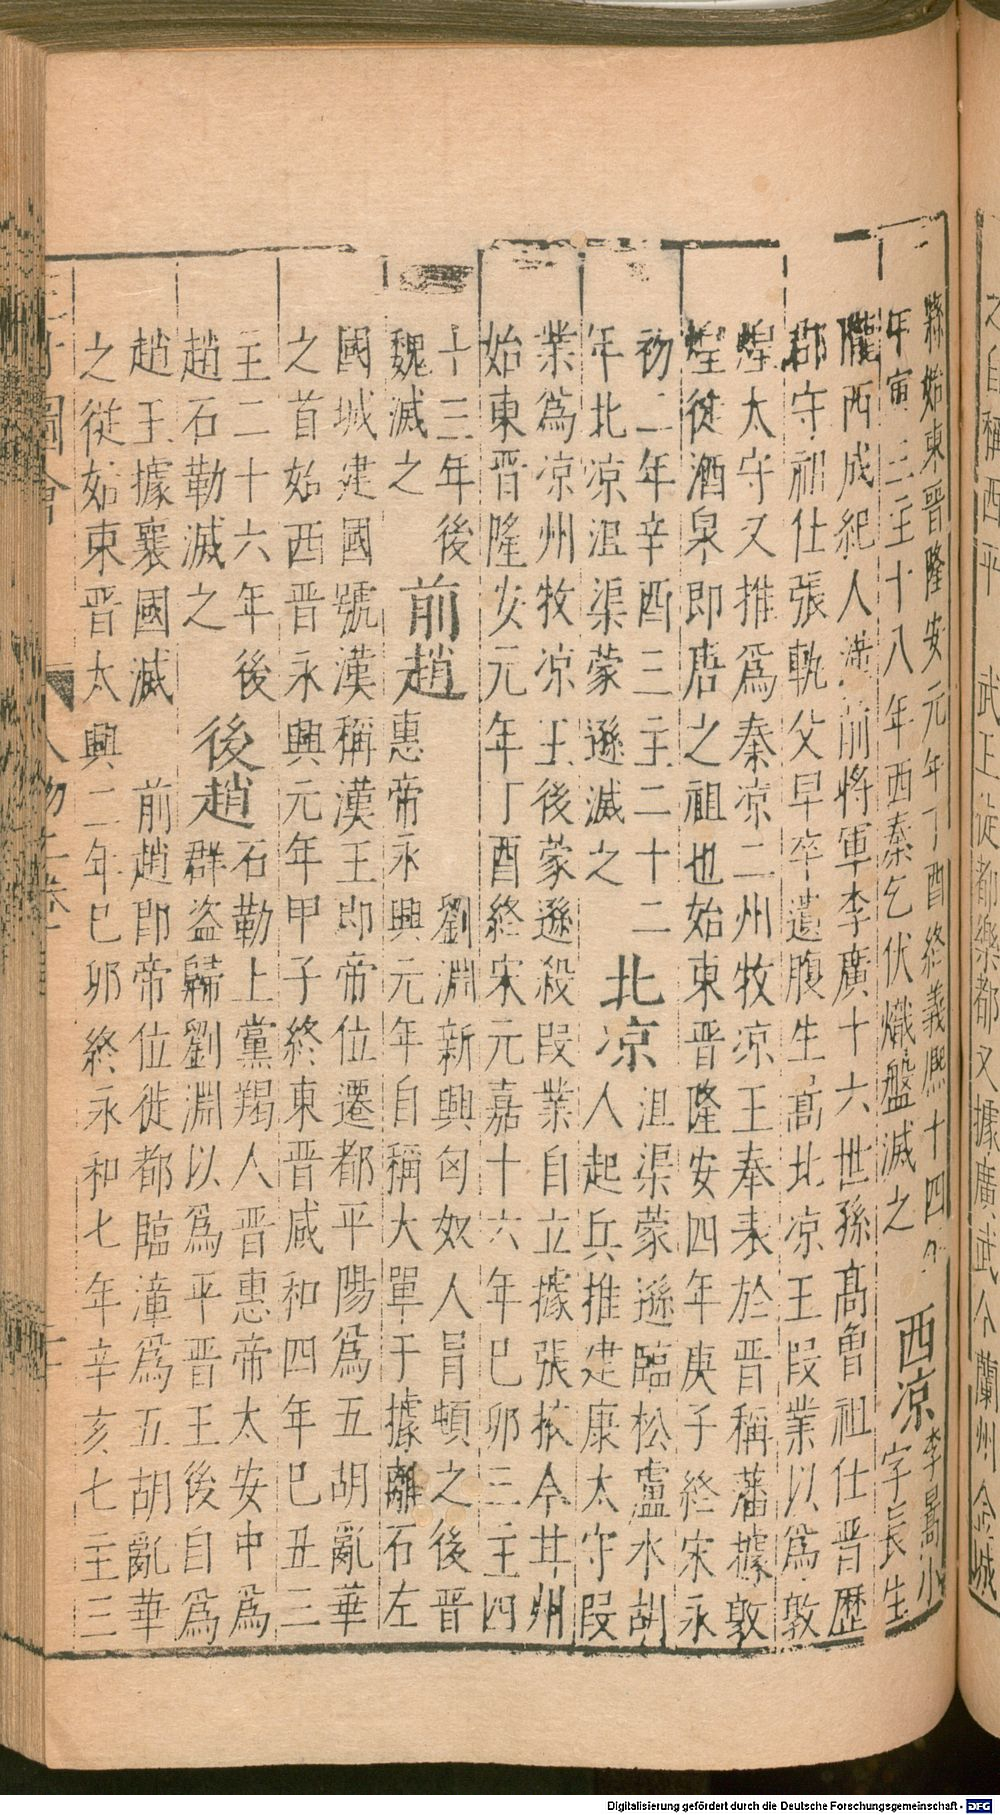 之自稱西平 武王徙都樂都又據廣武今蘭州金城
縣始東晉隆安元年丁酉終義熈十四
年寅三主十八年西秦乞伏熾盤滅之
西凉
李暠小
字長生
隴西成紀人漢前將軍李廣十六世孫髙曾祖仕晉歷
郡守祖仕張軌父早卒遺腹生髙北凉王段業以爲敦
煌太守又推爲秦凉二州牧凉王奉表於晉稱藩據敦
煌徙酒泉即唐之祖也始東晉隆安四年庚子終宋永
初二年辛酉三主二十二
年北凉沮渠蒙遜滅之
北凉
沮渠蒙遜臨松盧水胡
人起兵推建康太守段
業爲凉州牧凉王後蒙遜殺段業自立據張掖今甘州
始東晉隆安元年丁酉終宋元嘉十六年巳卯三主四
十三年後
魏滅之
前趙
劉淵新興匈奴人冐頓之後晉
惠帝永興元年自稱大單于據離石左
國城建國號漢稱漢王即帝位遷都平陽爲五胡亂華
之首始西晉永興元年甲子終東晉咸和四年巳丑三
主二十六年後
趙石勒滅之
後趙
石勒上黨羯人晉惠帝太安中爲
群盜歸劉淵以爲平晉王後自爲
趙王據襄國滅 前趙即帝位徙都臨漳爲五胡亂華
之從始東晉太興二年巳卯終永和七年辛亥七主三
Digitalisierung gefördert durch die Deutsche Forschungsgemeinschaft - DFG